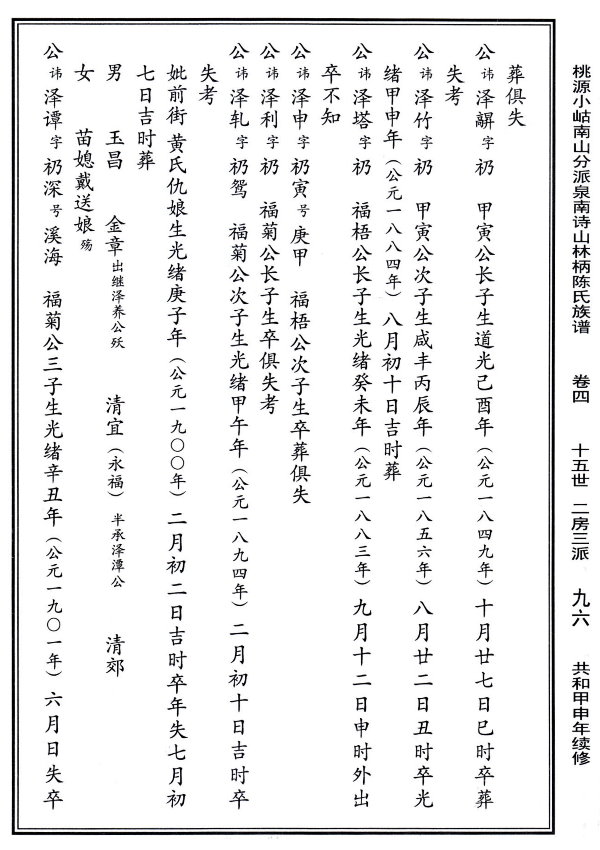 桃源小岵南山分派泉南诗山林柄陈氏族谱 卷四 十五世 二房三派 九六 共和甲申年续修
葬俱失
公讳泽骈字礽 甲寅公长子生道光己酉年（公元一八四九年）十月廿七日巳时卒葬
失考
公讳泽竹字礽 甲寅公次子生咸丰丙辰年（公元一八五六年）八月廿二日丑时卒光
绪甲申年（公元一八八四年）八月初十日吉时葬
公讳泽塔字礽 福梧公长子生光绪癸未年（公元一八八三年）九月十二日申时外出
卒不知
公讳泽申字礽寅号庚甲 福梧公次子生卒葬俱失
公讳泽利字礽 福菊公长子生卒俱失考
公讳泽轧字礽鸳 福菊公次子生光绪甲午年（公元一八九四年）二月初十日吉时卒
失考
妣前街黄氏仇娘生光绪庚子年（公元一九〇〇年）二月初二日吉时卒年失七月初
七日吉时葬
男 玉昌 金章出继泽养公殁 清宜（永福）半承泽潭公 清郊
女 苗媳戴送娘殇
公讳泽谭字礽深号溪海 福菊公三子生光绪辛丑年（公元一九〇一年）六月日失卒